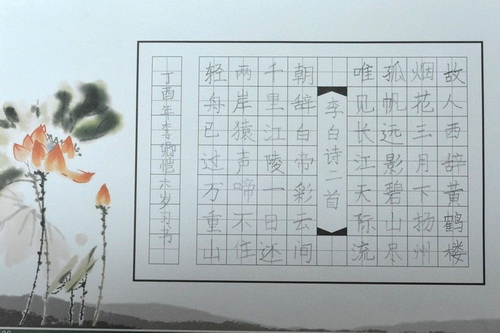 故人西辞黄鹤楼
烟花三月下扬州
孤帆远影碧山尽
唯见长江天际流
李白诗二首
朝辞白帝彩云间
千里江陵一日还
两岸猿声啼不住
轻舟已过万重山
丁酉年李卿恺六岁习书